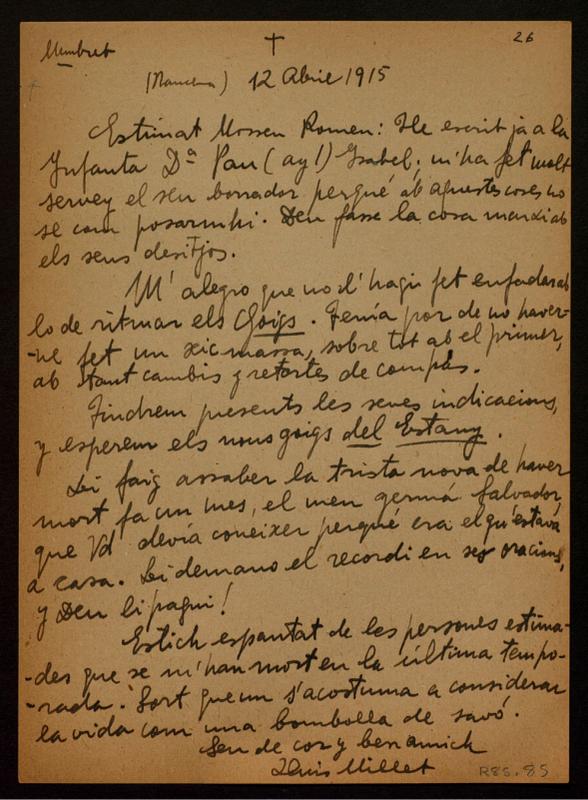 Mumbret
26
(Barcelona) 12 Abril 1915
Estimat Mossen Romeu: He escrit ja a la
Infanta Dª Pau (ay!) Isabel; m'ha fet molt
servey el seu borrador perqué ab aquestes coses no
se com posarmhi. Deu fasse la cosa marxi ab
els seus desitjos.
M'alegro que no l'hagi fet enfadar ab
lo de ritmar els Goigs. Tenía por de no haver-
-ne fet un xic massa, sobre tot ab el primer,
ab tant cambis y retortes de compás.
Tindrem presents les seves indicacions,
y esperem els nous goigs del Estany.
Li faig assaber la trista nova de haver
mort fa un mes, el meu germá Salvador,
que Vd devía coneixer perqué era el qu'estava
a casa. Li demano el recordi en ses oracions,
y Deu li pagui!
Estich espantat de les persones estima-
-des que se m'han mort en la última tempo-
-rada. Sort que un s'acostuma a considerar
la vida com una bombolla de savó.
Seu de cor y ben amich
Lluis Millet
R8S.85